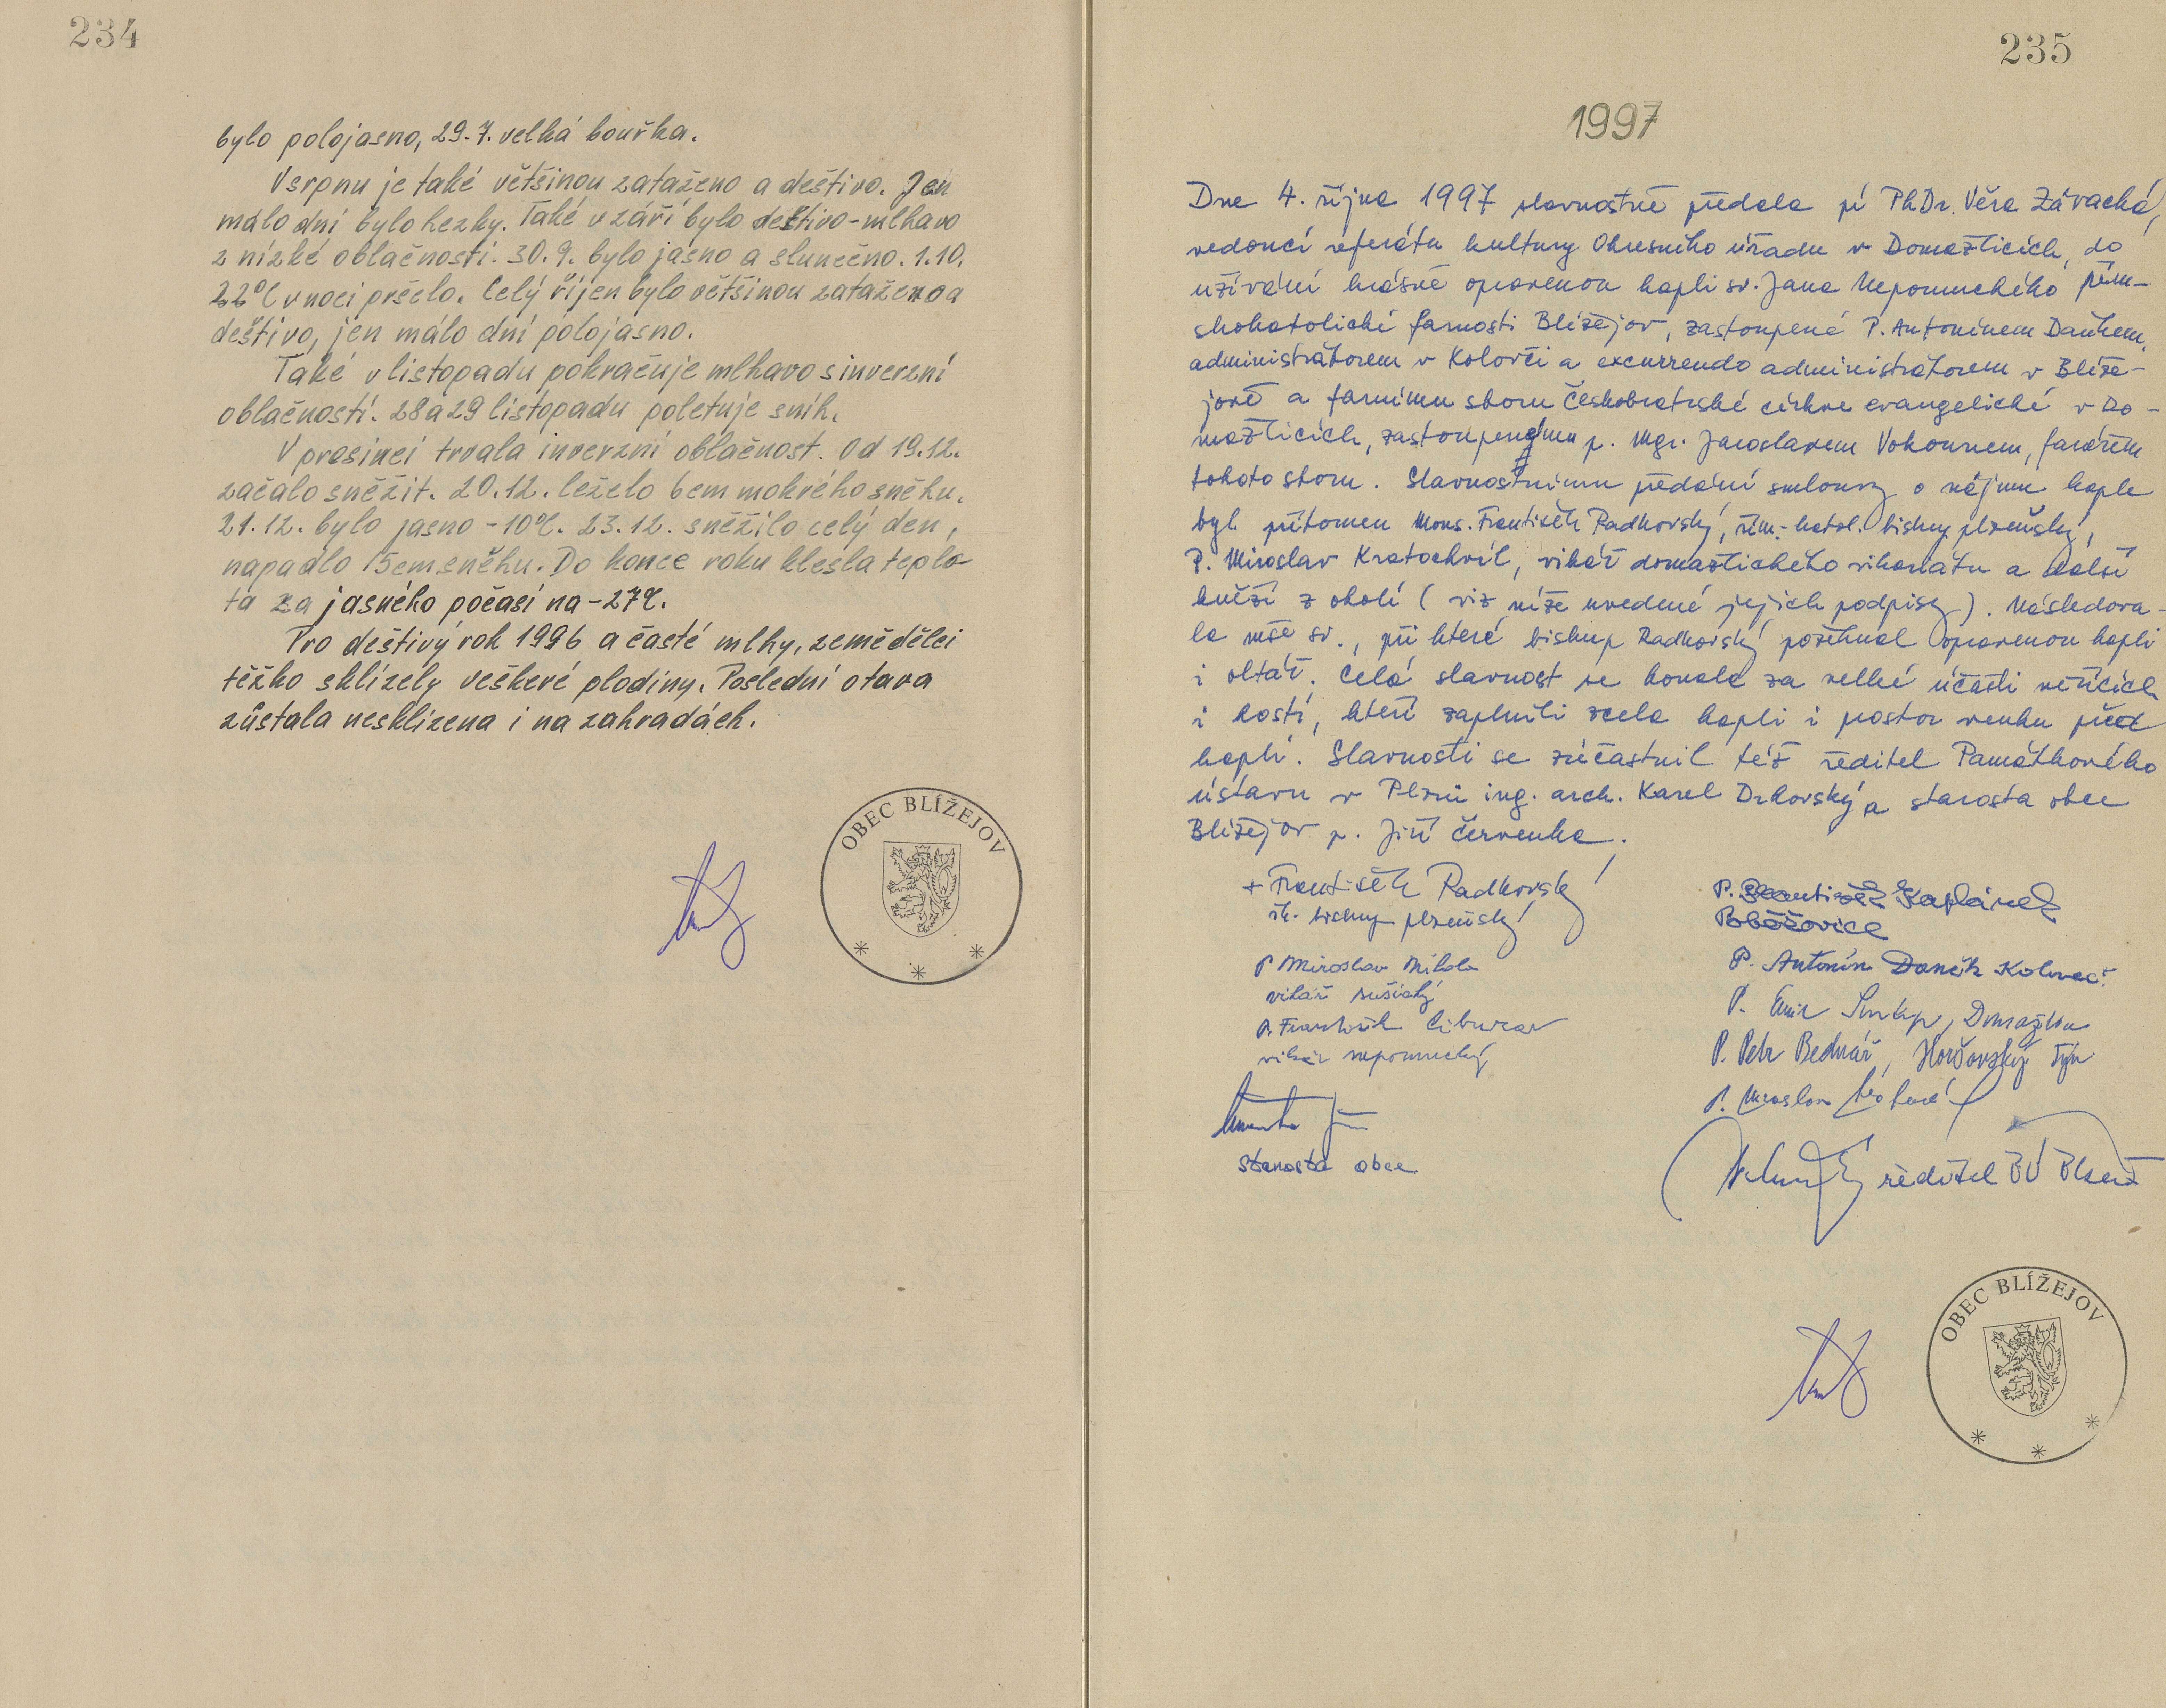 234
bylo polojasno, 29.7. velká bouřka.
V srpnu je také většinou zataženo a deštivo. Jen
málo dní bylo hezky. Také v září bylo deštivo - mlhavo
z nízké oblačnosti. 30.9. bylo jasno a slunečno. 1.10.
22°C v noci pršelo. Celý říjen bylo většinou zataženo a
deštivo, jen málo dní polojasno.
Také v listopadu pokračuje mlhavo s inverzní
oblačností. 28 a 29 listopadu poletuje sníh.
V prosinci trvala inverzní oblačnost. Od 19.12.
začalo sněžit. 20.12. leželo 6cm mokrého sněhu.
21.12. bylo jasno -10°C. 23.12. sněžilo celý den,
napadlo 15cm sněhu. Do konce roku klesla teplo-
ta za jasného počasí na -27°C.
Pro deštivý rok 1996 a časté mlhy, zemědělci
těžko sklízely veškeré plodiny. Poslední otava
zůstala nesklizena i na zahradách.
OBEC BLÍŽEJOV
235
1997
Dne 4. října 1997 slavnostně předala pí PhDr. Věra Závacká,
vedoucí referátu kultury Okresního úřadu v Domažlicích, do
užívání krásně opravenou kapli sv. Jana Nepomuckého řím-
skokatolické farnosti Blížejov, zastoupené P. Antonínem Daňkem,
administrátorem v Kolovči a excurrendo administrátorem v Blíže-
jově a farnímu sboru Českobratrské církve evangelické v Do-
mažlicích, zastoupenému p. Mgr. Jaroslavem Vokounem, farářem
tohoto sboru. Slavnostnímu předání smlouvy o nájmu kaple
byl přítomen Mons. František Radkovský, řím.-katol. biskup plzeňský,
P. Miroslav Kratochvíl, vikář domažlického vikariátu a další
kněží z okolí (viz níže uvedené jejich podpisy). Následova-
la mše sv., při které biskup Radkovský požehnal opravenou kapli
i oltář. Celá slavnost se konala za velké účasti věřících
i hostí, kteří zaplnili zcela kapli i prostor venku před
kaplí. Slavnosti se zúčastnil též ředitel Památkového
ústavu v Plzni ing. arch. Karel Drhovský a starosta obce
Blížejov p. Jiří Červenka.
+ František Radkovský
řk. biskup plzeňský
P. František Kaplánek
Poběžovice
P. Miroslav
vikář sušický
P. Antonín Daněk Koloveč
P. František
vikář nepomucký
P. Domažlice
P. Petr Bednář, Horšovský Týn
P. Miroslav
starosta obce
ředitel PÚ Plzeň
OBEC BLÍŽEJOV